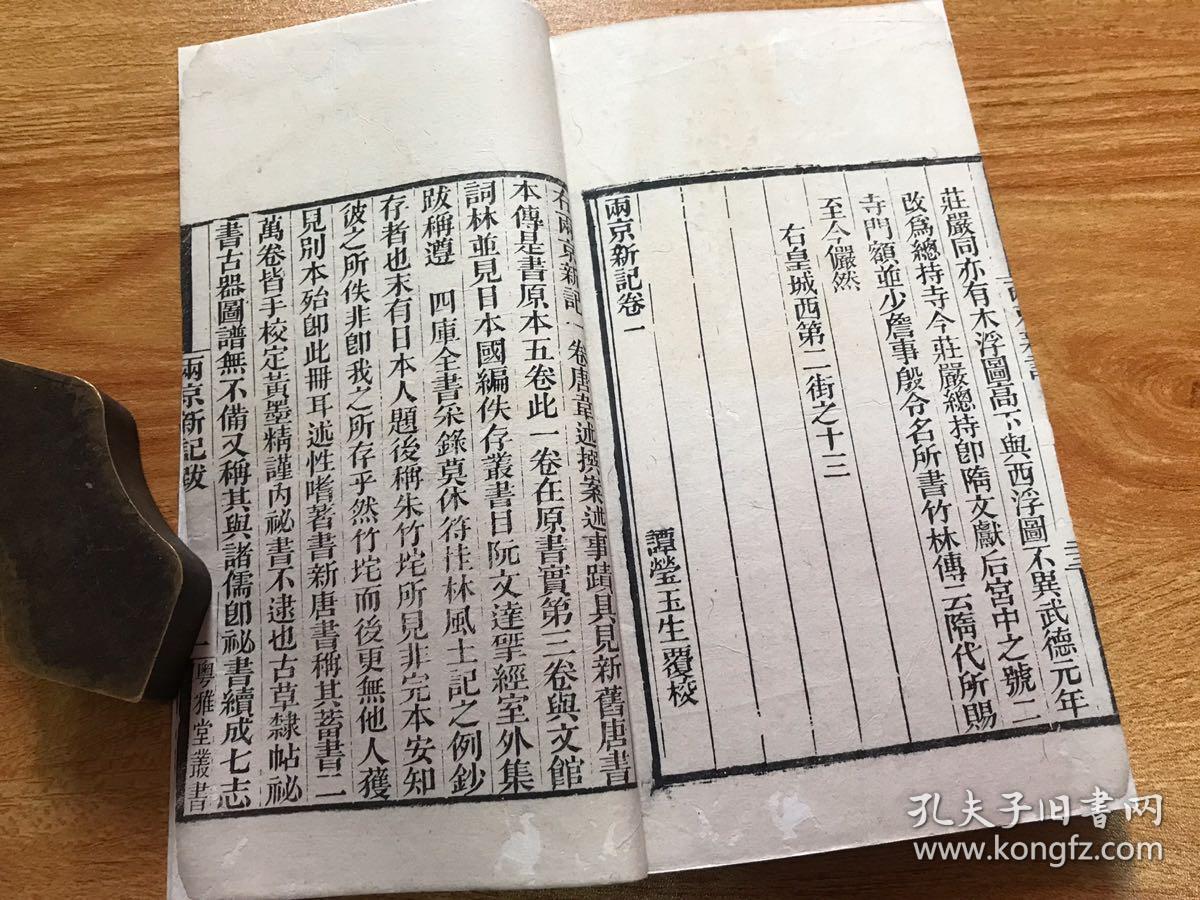 莊嚴同亦有木浮圖高下與西浮圖不異武德元年
改爲總持寺今莊嚴總持卽隋文獻后宮中之號二
寺門額並少詹事殷令名所書竹林傳云隋代所賜
至今儼然
右皇城西第二街之十三
兩京新記卷一
譚瑩玉生覆校
右兩京新記一卷唐韋述撰案述事蹟具見新舊唐書
本傳是書原本五卷此一卷在原書實第三卷與文館
詞林並見日本國編佚存叢書日阮文達揅經室外集
跋稱遵 四庫全書采錄莫休符桂林風土記之例鈔
存者也末有日本人題後稱朱竹垞所見非完本安知
彼之所佚非卽我之所存乎然竹垞而後更無他人獲
見別本殆卽此冊耳述性嗜著書新唐書稱其蓄書二
萬卷皆手校定黃墨精謹內祕書不逮也古草隸帖祕
書古器圖譜無不備又稱其與諸儒卽祕書續成七志
兩京新記跋
一
粵雅堂叢書
孔夫子旧书网
www.kongfz.com